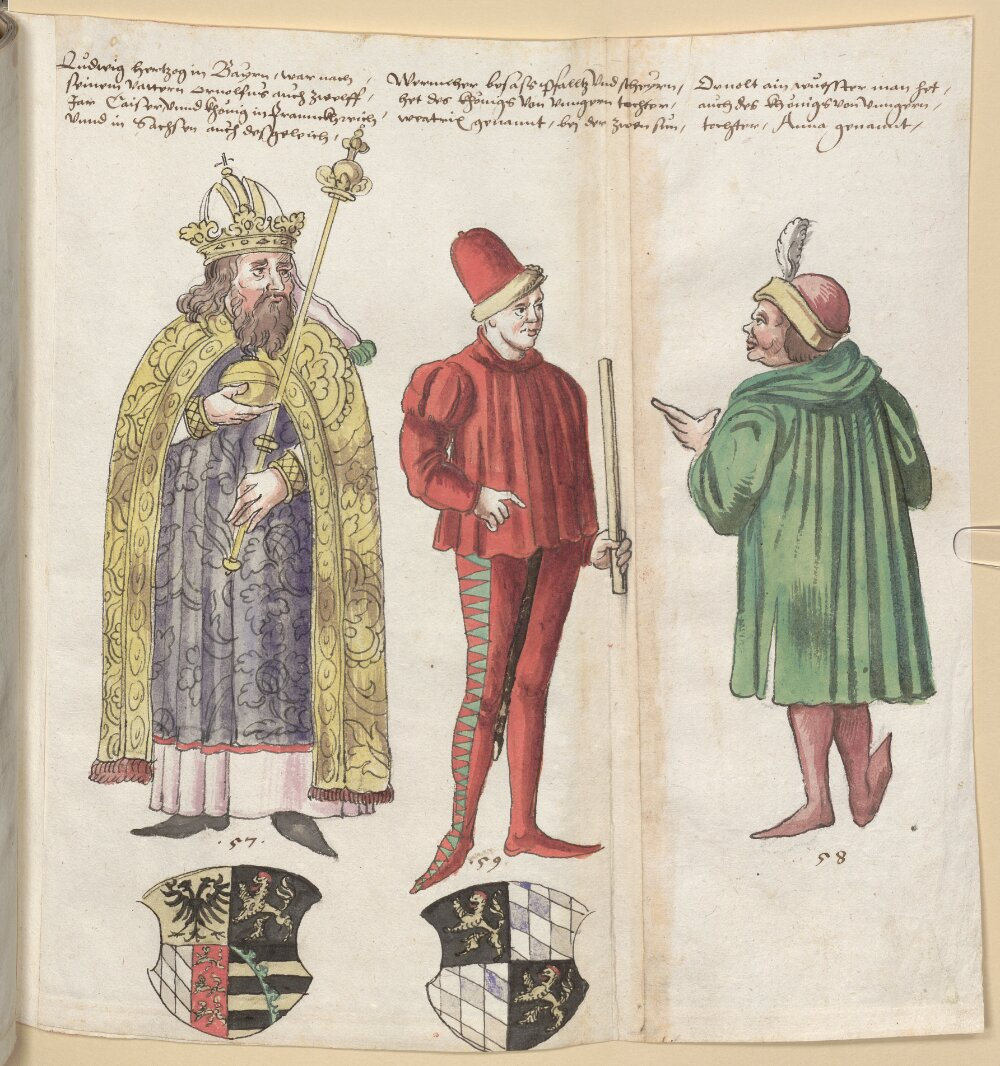 Ludwig hertzog in Bayrn, war nach,
seinem vattern Ornolfus auch zwelff,
Jar Caiser vnnd khönig in frannckhreich,
vnnd in Sachsen auch desgeleich,
Wernnher besass Pfalltz vnd scheyrn,
het des khönigs von vnngern tochter,
weatrix genannt, bei der zwen sün,
Ornolt ain wüesster man het,
auch des khönigs von vnngern,
tochter, Anna genannt,
.57.
.59.
58